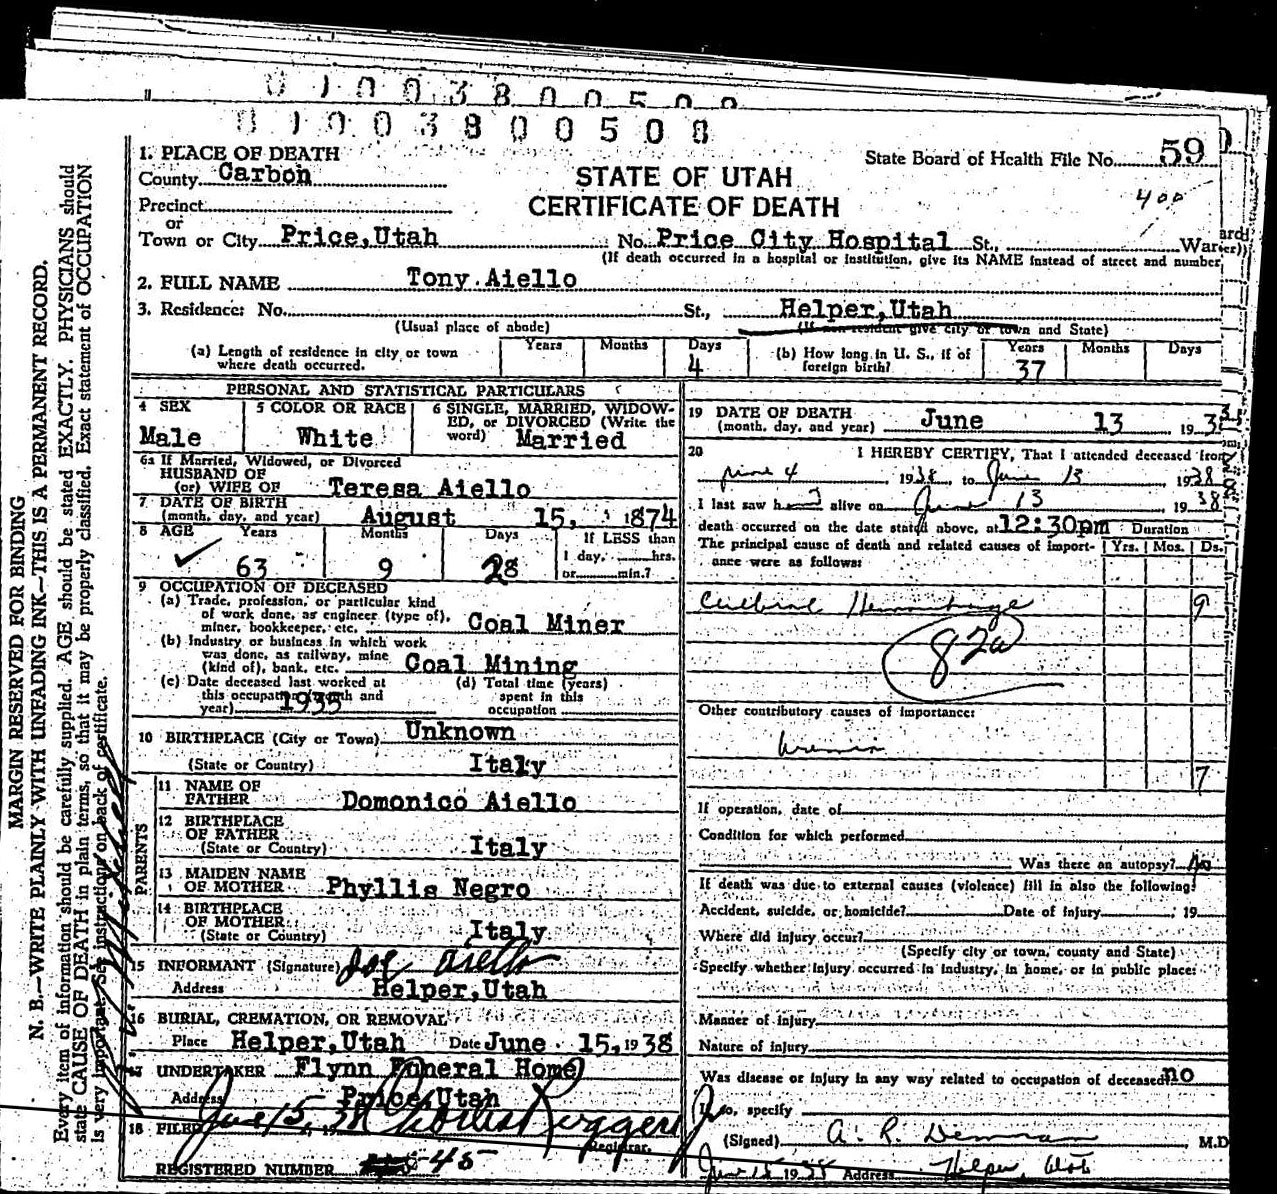 0 1 0 0 3 8 0 0 5 0 8
0 1 0 0 3 8 0 0 5 0 8
State Board of Health File No. 59
400
STATE OF UTAH
CERTIFICATE OF DEATH
1. PLACE OF DEATH
County Carbon
Precinct
or
Town or City Price, Utah No. Price City Hospital St., Ward
(If death occurred in a hospital or institution, give its NAME instead of street and number
2. FULL NAME Tony Aiello
3. Residence: No. St., Helper, Utah
(Usual place of abode) (If non resident give city or town and State)
(a) Length of residence in city or town where death occurred. Years Months Days 4
(b) How long in U. S., if of foreign birth? Years 37 Months Days
PERSONAL AND STATISTICAL PARTICULARS
4 SEX Male
5 COLOR OR RACE White
6 SINGLE, MARRIED, WIDOWED, or DIVORCED (Write the word) Married
6a If Married, Widowed, or Divorced
HUSBAND OF
(or) WIFE OF Teresa Aiello
7 DATE OF BIRTH
(month, day, and year) August 15, 1874
8 AGE Years 63 Months 9 Days 28 If LESS than 1 day, hrs. or min.?
9 OCCUPATION OF DECEASED
(a) Trade, profession, or particular kind
of work done, as engineer (type of),
miner, bookkeeper, etc. Coal Miner
(b) Industry or business in which work
was done, as railway, mine
(kind of), bank, etc. Coal Mining
(c) Date deceased last worked at
this occupation (month and
year) 1935
(d) Total time (years)
spent in this
occupation
10 BIRTHPLACE (City or Town) Unknown
(State or Country) Italy
PARENTS
11 NAME OF
FATHER Domonico Aiello
12 BIRTHPLACE
OF FATHER
(State or Country) Italy
13 MAIDEN NAME
OF MOTHER Phyllis Negro
14 BIRTHPLACE
OF MOTHER
(State or Country) Italy
15 INFORMANT (Signature) Joe Aiello
Address Helper, Utah
16 BURIAL, CREMATION, OR REMOVAL
Place Helper, Utah Date June 15, 1938
17 UNDERTAKER Flynn Funeral Home
Address Price, Utah
18 FILED June 15, 1938 Charles Ruggeri
Registrar.
REGISTERED NUMBER 45
19 DATE OF DEATH
(month, day, and year) June 13 193
20 I HEREBY CERTIFY, That I attended deceased from
June 4, 1938, to June 13, 1938
I last saw h alive on June 13 1938
death occurred on the date stated above, at 12:30pm Duration
The principal cause of death and related causes of importance were as follows: Yrs. Mos. Ds.
Cerebral Hemorrhage 9
82a
Other contributory causes of importance:
Uremia
7
If operation, date of
Condition for which performed
Was there an autopsy? No
If death was due to external causes (violence) fill in also the following:
Accident, suicide, or homicide? Date of injury 19
Where did injury occur?
(Specify city or town, county and State)
Specify whether injury occurred in industry, in home, or in public place:
Manner of injury
Nature of injury
Was disease or injury in any way related to occupation of deceased? no
so, specify
(Signed) A. R. Demman M.D
June 15 1938 Address Helper, Utah
MARGIN RESERVED FOR BINDING
N. B.—WRITE PLAINLY WITH UNFADING INK—THIS IS A PERMANENT RECORD.
Every item of information should be carefully supplied. AGE should be stated EXACTLY. PHYSICIANS should
state CAUSE OF DEATH in plain terms, so that it may be properly classified. Exact statement of OCCUPATION
is very important. See instruction on back of certificate.